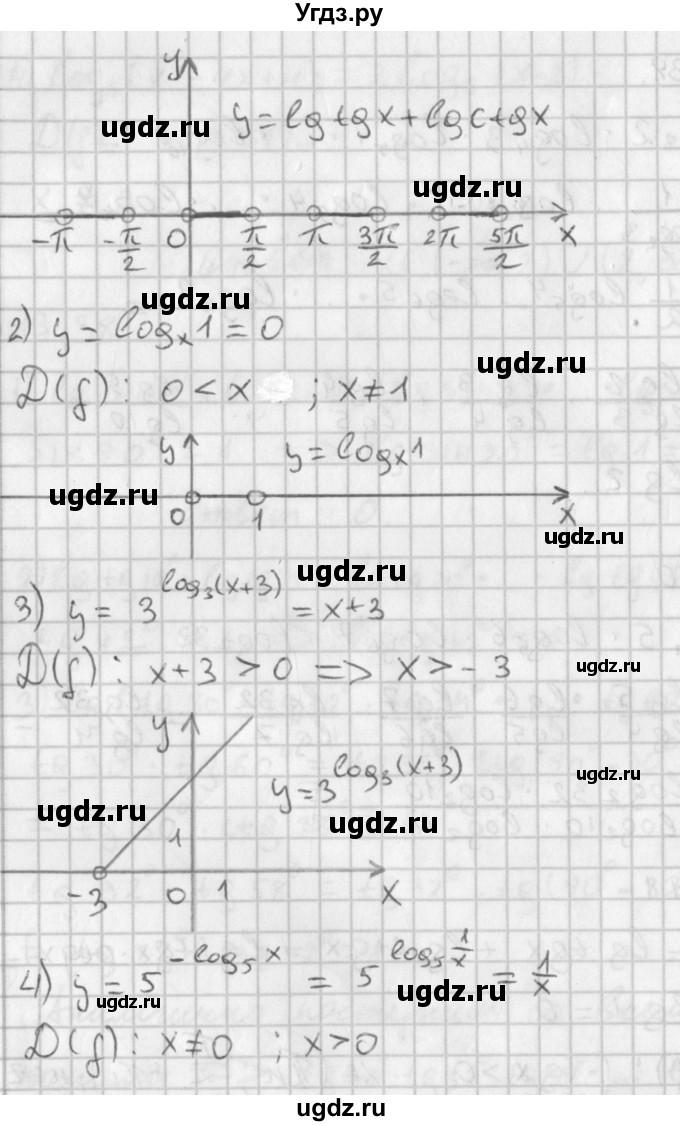 Угдз.ру
y
ugdz.ru
y = lg tg x + lg ctg x
ugdz.ru
-π -π/2 0 π/2 π 3π/2 2π 5π/2 x
ugdz.ru
2) y = log_x 1 = 0
ugdz.ru
D(f): 0 < x ; x ≠ 1
y y = log_x 1
ugdz.ru
0 1 x
ugdz.ru
ugdz.ru
3) y = 3^log_3(x+3) = x+3
D(f): x+3 > 0 => x > -3
ugdz.ru
y
y = 3^log_3(x+3)
ugdz.ru
ugdz.ru
ugdz.ru
1
-3 0 1 x
4) y = 5^-log_5 x = 5^log_5 1/x = 1/x
ugdz.ru
ugdz.ru
D(f): x ≠ 0 ; x > 0
ugdz.ru